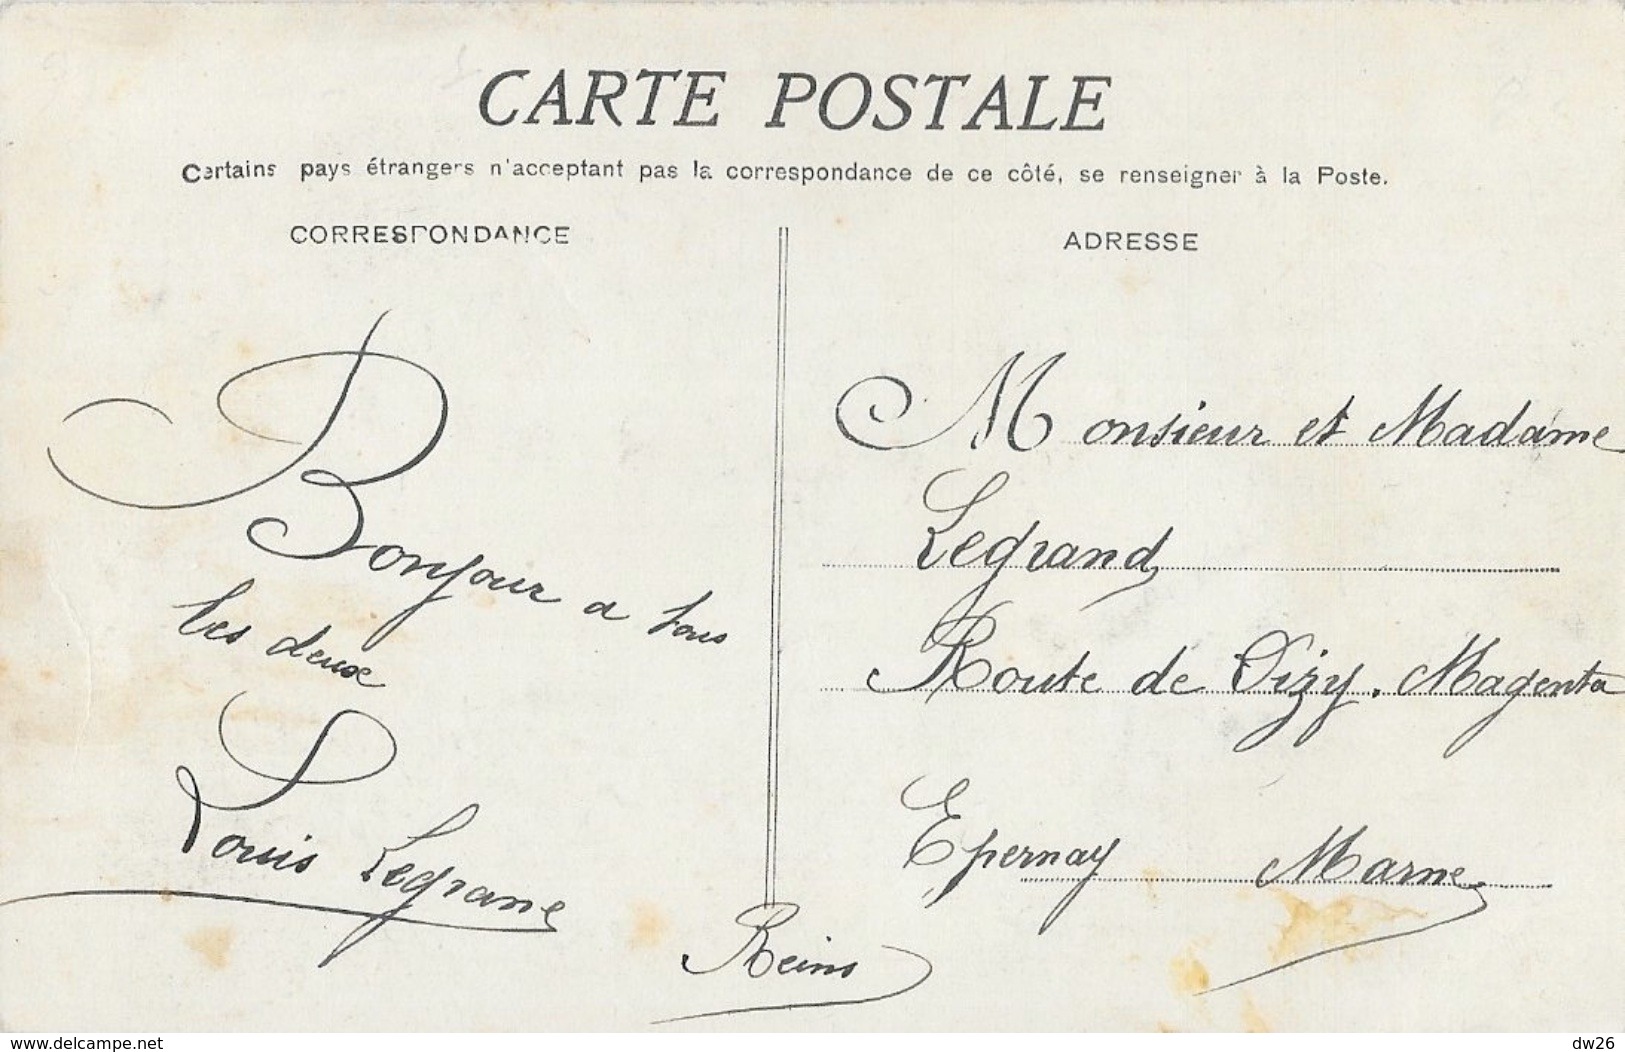 CARTE POSTALE
Certains pays étrangers n'acceptant pas la correspondance de ce côté, se renseigner à la Poste.
CORRESPONDANCE
Bonjour a tous
les deux
Louis Legrand
Reims
ADRESSE
Monsieur et Madame
Legrand
Route de Dizy. Magenta
Epernay Marne
www.delcampe.net
dw26